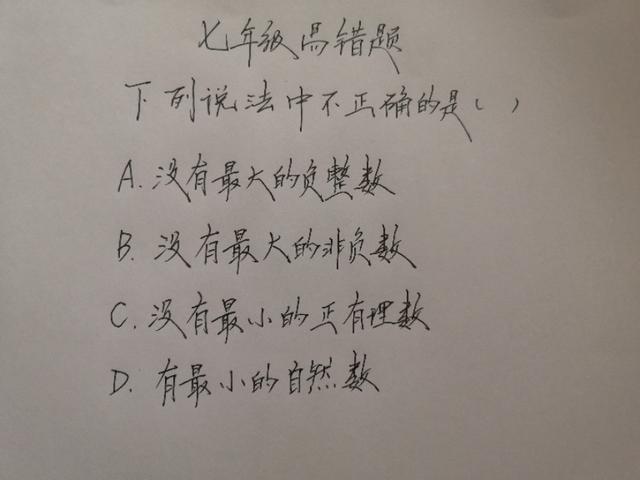 七年级易错题
下列说法中不正确的是( )
A. 没有最大的负整数
B. 没有最大的非负数
C. 没有最小的正有理数
D. 有最小的自然数